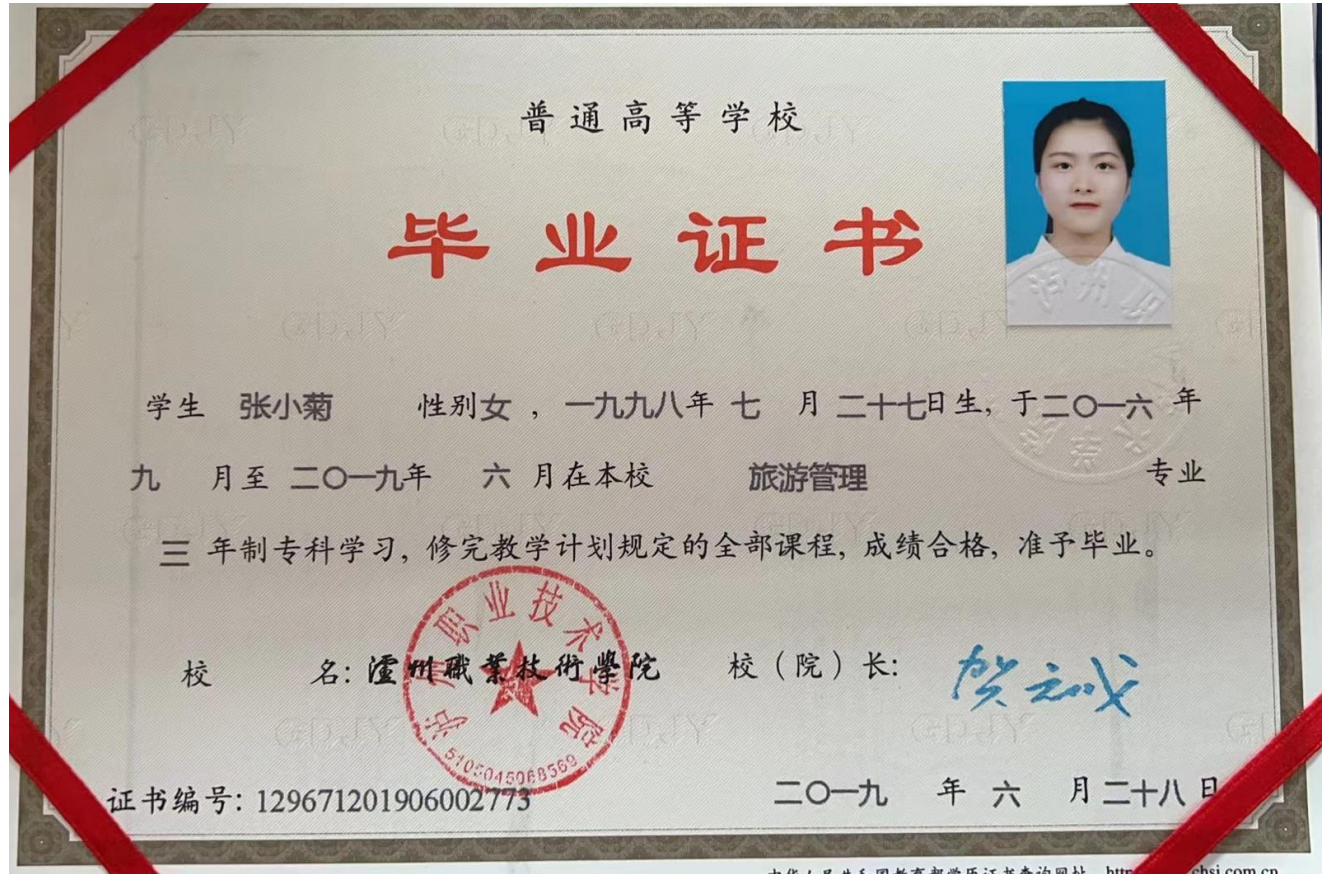 普通高等学校
毕业证书
学生 张小菊 性别女，一九九八年 七 月 二十七日生，于二〇一六 年
九 月至 二〇一九年 六 月在本校 旅游管理 专业
三 年制专科学习，修完教学计划规定的全部课程，成绩合格，准予毕业。
校 名：瀘州職業技術學院 校（院）长：贺元成
泸州职业技术学院
5105045068569
证书编号：129671201906002773 二〇一九 年 六 月 二十八日
中华人民共和国教育部学历证书查询网址
chsi.com.cn